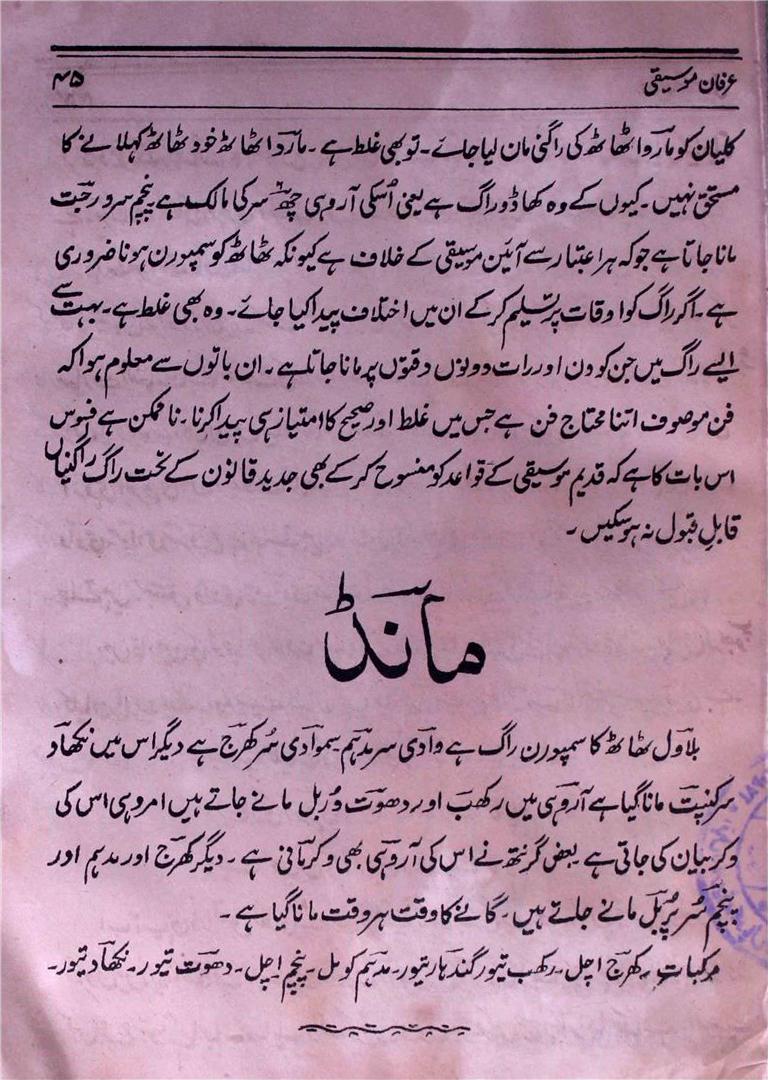 عرفان موسیقی
۴۵
کلیان کو ماروا ٹھاٹھ کی راگنی مان لیا جائے۔ تو بھی غلط ہے۔ ماروا ٹھاٹھ خود ٹھاٹھ کہلانے کا
مستحق نہیں۔ کیوں کے وہ کھاڈو راگ ہے یعنی اُسکی آروہی چھ سر کی مالک ہے پنچم سر ورجت
مانا جاتا ہے جو کہ ہر اعتبار سے آئین موسیقی کے خلاف ہے کیونکہ ٹھاٹھ کو سمپورن ہونا ضروری
ہے۔ اگر راگ کو اوقات پر تسلیم کر کے ان میں اختلاف پیدا کیا جائے۔ وہ بھی غلط ہے۔ بہت سے
ایسے راگ ہیں جن کو دن اور رات دونوں وقتوں پر مانا جاتا ہے۔ ان باتوں سے معلوم ہوا کہ
فن موصوف اتنا محتاج فن ہے جس میں غلط اور صحیح کا امتیاز ہی پیدا کرنا۔ ناممکن ہے افسوس
اس بات کا ہے کہ قدیم موسیقی کے قواعد کو منسوح کر کے بھی جدید قانون کے تحت راگ راگنیاں
قابلِ قبول نہ ہو سکیں۔
مانڈ
بلاول ٹھاٹھ کا سمپورن راگ ہے وادی سر مدہم سموادی سُر کھرج ہے دیگر اس میں نکھاد
سر کنپت مانا گیا ہے آروہی میں رکھب اور دھوت دُربل مانے جاتے ہیں امروہی اس کی
وکر بیان کی جاتی ہے بعض گرنتھ نے اس کی آروہی بھی وکر مانی ہے۔ دیگر کھرج اور مدہم اور
پنچم سُر پربل مانے جاتے ہیں۔ گانے کا وقت ہر وقت مانا گیا ہے۔
مرکبات۔ کھرج اچل۔ رکھب تیور گندہار تیور۔ مدہم کومل۔ پنچم اچل۔ دھوت تیور۔ نکھاد تیور۔